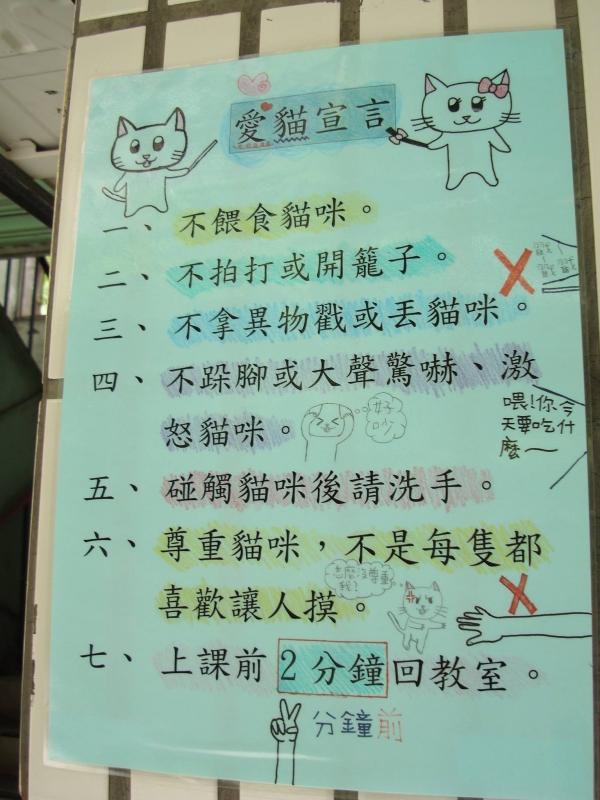 愛貓宣言
一、不餵食貓咪。
二、不拍打或開籠子。
三、不拿異物戳或丟貓咪。
四、不跺腳或大聲驚嚇、激
怒貓咪。
好吵
喂!你今
天要吃什
麼~
五、碰觸貓咪後請洗手。
六、尊重貓咪，不是每隻都
喜歡讓人摸。
怎麼沒尊重
我?
七、上課前2分鐘回教室。
分鐘前